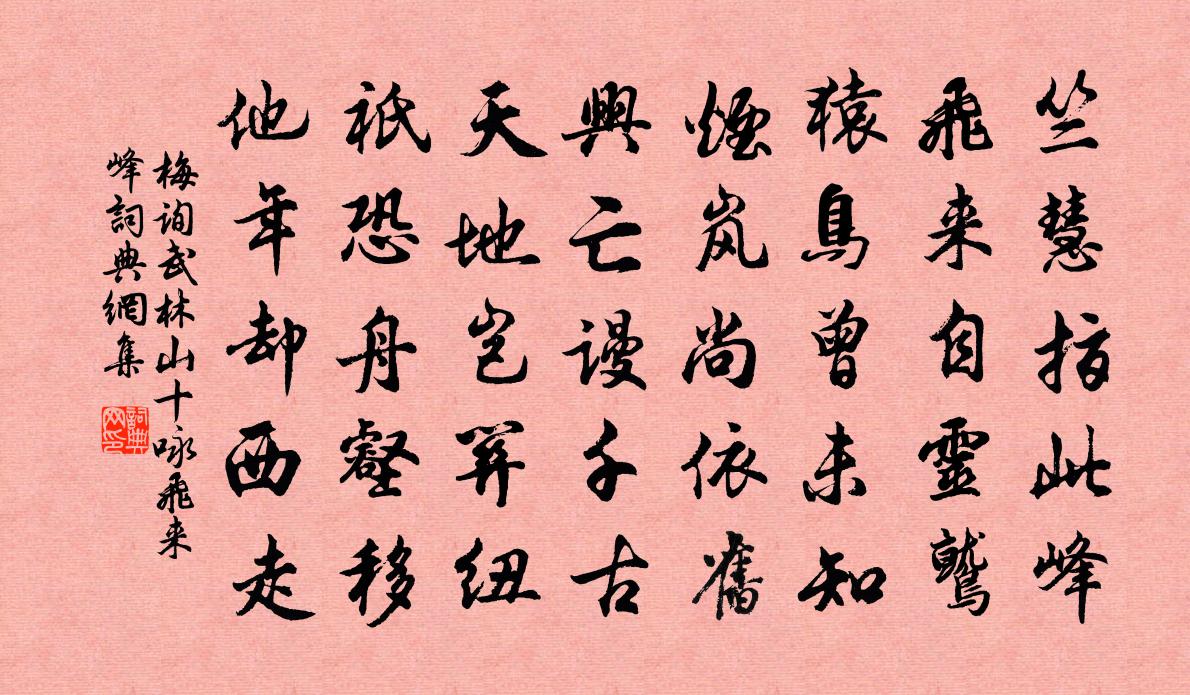 竺慧指此峰
飛来自靈鷲
猿鳥曽未知
煙岚尚依舊
興亡謾千古
天地豈筭紐
祇恐舟壑移
他年却西走
梅询武林山十咏飛来
峰詞典網集
詞典网印